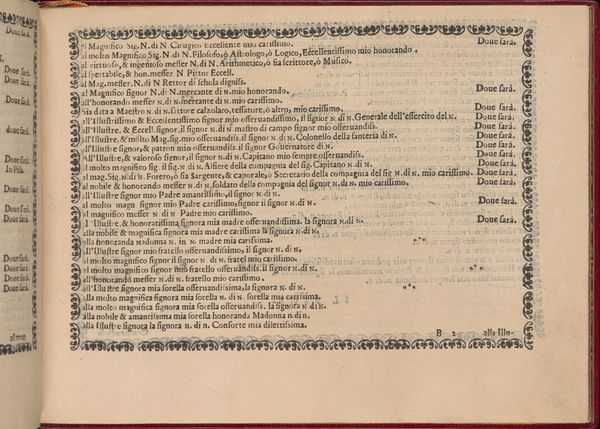 al Magnifico Sig. N. di N. Cirugico Eccellente mio carissimo. Doue sarà.
al molto Magnifico Sig. N. di N. Filosofo, ò Astrologo, ò Logico, Eccellentissimo mio honorando.
al virtuoso, & ingenioso messer N. di N. Arithmetico, ò sia scrittore, ò Musico.
al spettabile, & hon. messer N. Pittor Eccell.
al Mag. messer N. di N Rettor di schola dignìss.
al Magnifico signor N. di N. mercante di N. mio honorando. Doue sarà.
all'honorando messer N. di N. mercante di N. mio carissimo.
Sia data a Maestro N di N. Sartore calzolaro, tessatore, ò altro, mio carissimo. Doue sarà.
all'Illustrissimo & Eccellentissimo signor mio osseruandissimo, il signor N di N. Generale dell'essercito del N. Doue sarà.
all'Illustre. & Eccell. signor, il signor N. di N mastro di campo signor mio osseruandiss. Doue sarà.
all'Illustre, & molto Mag. sig. mio osseruandiss. il signor N. di N. Colonello della fanteria di N. Doue sarà.
all'Illustre signor, & patron mio osseruandiss. il signor Gouernatore di N. Doue sarà.
All'Illustre, & valoroso signor, il signor N. di N. Capitano mio sempre osseruandiss. Doue sarà.
al molto magnifico sig. il sig. N. di N. Alfiere della compagnia del sig. Capitano N. di N. Doue sarà.
al mag. Sig. N. di N. Forero, ò sia Sargente, & caporale, ò Secretario della compagnia del sig N. di N. mio carissimo. Doue sarà.
al nobile & honorando messer N. di N, soldato della compagnia del signor N. di N. mio carissimo. Doue sarà.
all'Illustre signor mio Padre amantissimo, il signor N. di N.
al molto magn signor mio Padre carissimo, signor il signor N. di N. Doue sarà.
al magnifico messer N. di N Padre mio carissimo.
all'Illustre. & honoratissima signora mia madre osseruandissima. la signora N. di N. Doue sarà.
alla nobile & magnifica signora mia madre carissima la signora N. di N.
alla honoranda Madonna N. in N. madre mia carissima.
all'Illustre signor mio fratello osseruandissimo, il signor N. di N.
al molto magnifico signor il signor N. di N. fratel mio carissimo.
al molto magnifico signor mio fratello osseruandiss. il signor N. di N.
all'honorando messer N. di N. fratello mio carissimo.
all'Illustre signora mia sorella osseruandissima, la signora N. di N.
alla molto magnifica signora mia sorella N. di N. sorella mia carissima.
alla molto magnifica signora mia sorella osseruandiss. la signora N di N.
alla nobile & amantissima mia sorella honoranda Madonna n. di n.
alla Illustre signora la signora n. di n. Consorte mia dilettissima.
B 2 alla Illu-
Doue sarà.
Doue sarà.
Doue sarà.
Doue sarà.
doue sarà.
Doue sarà.
In Pisa.
Doue sarà.
Doue sarà.
Doue sarà.
Doue sarà.
Doue sarà.
Doue sarà.
Doue sarà.
al mag.